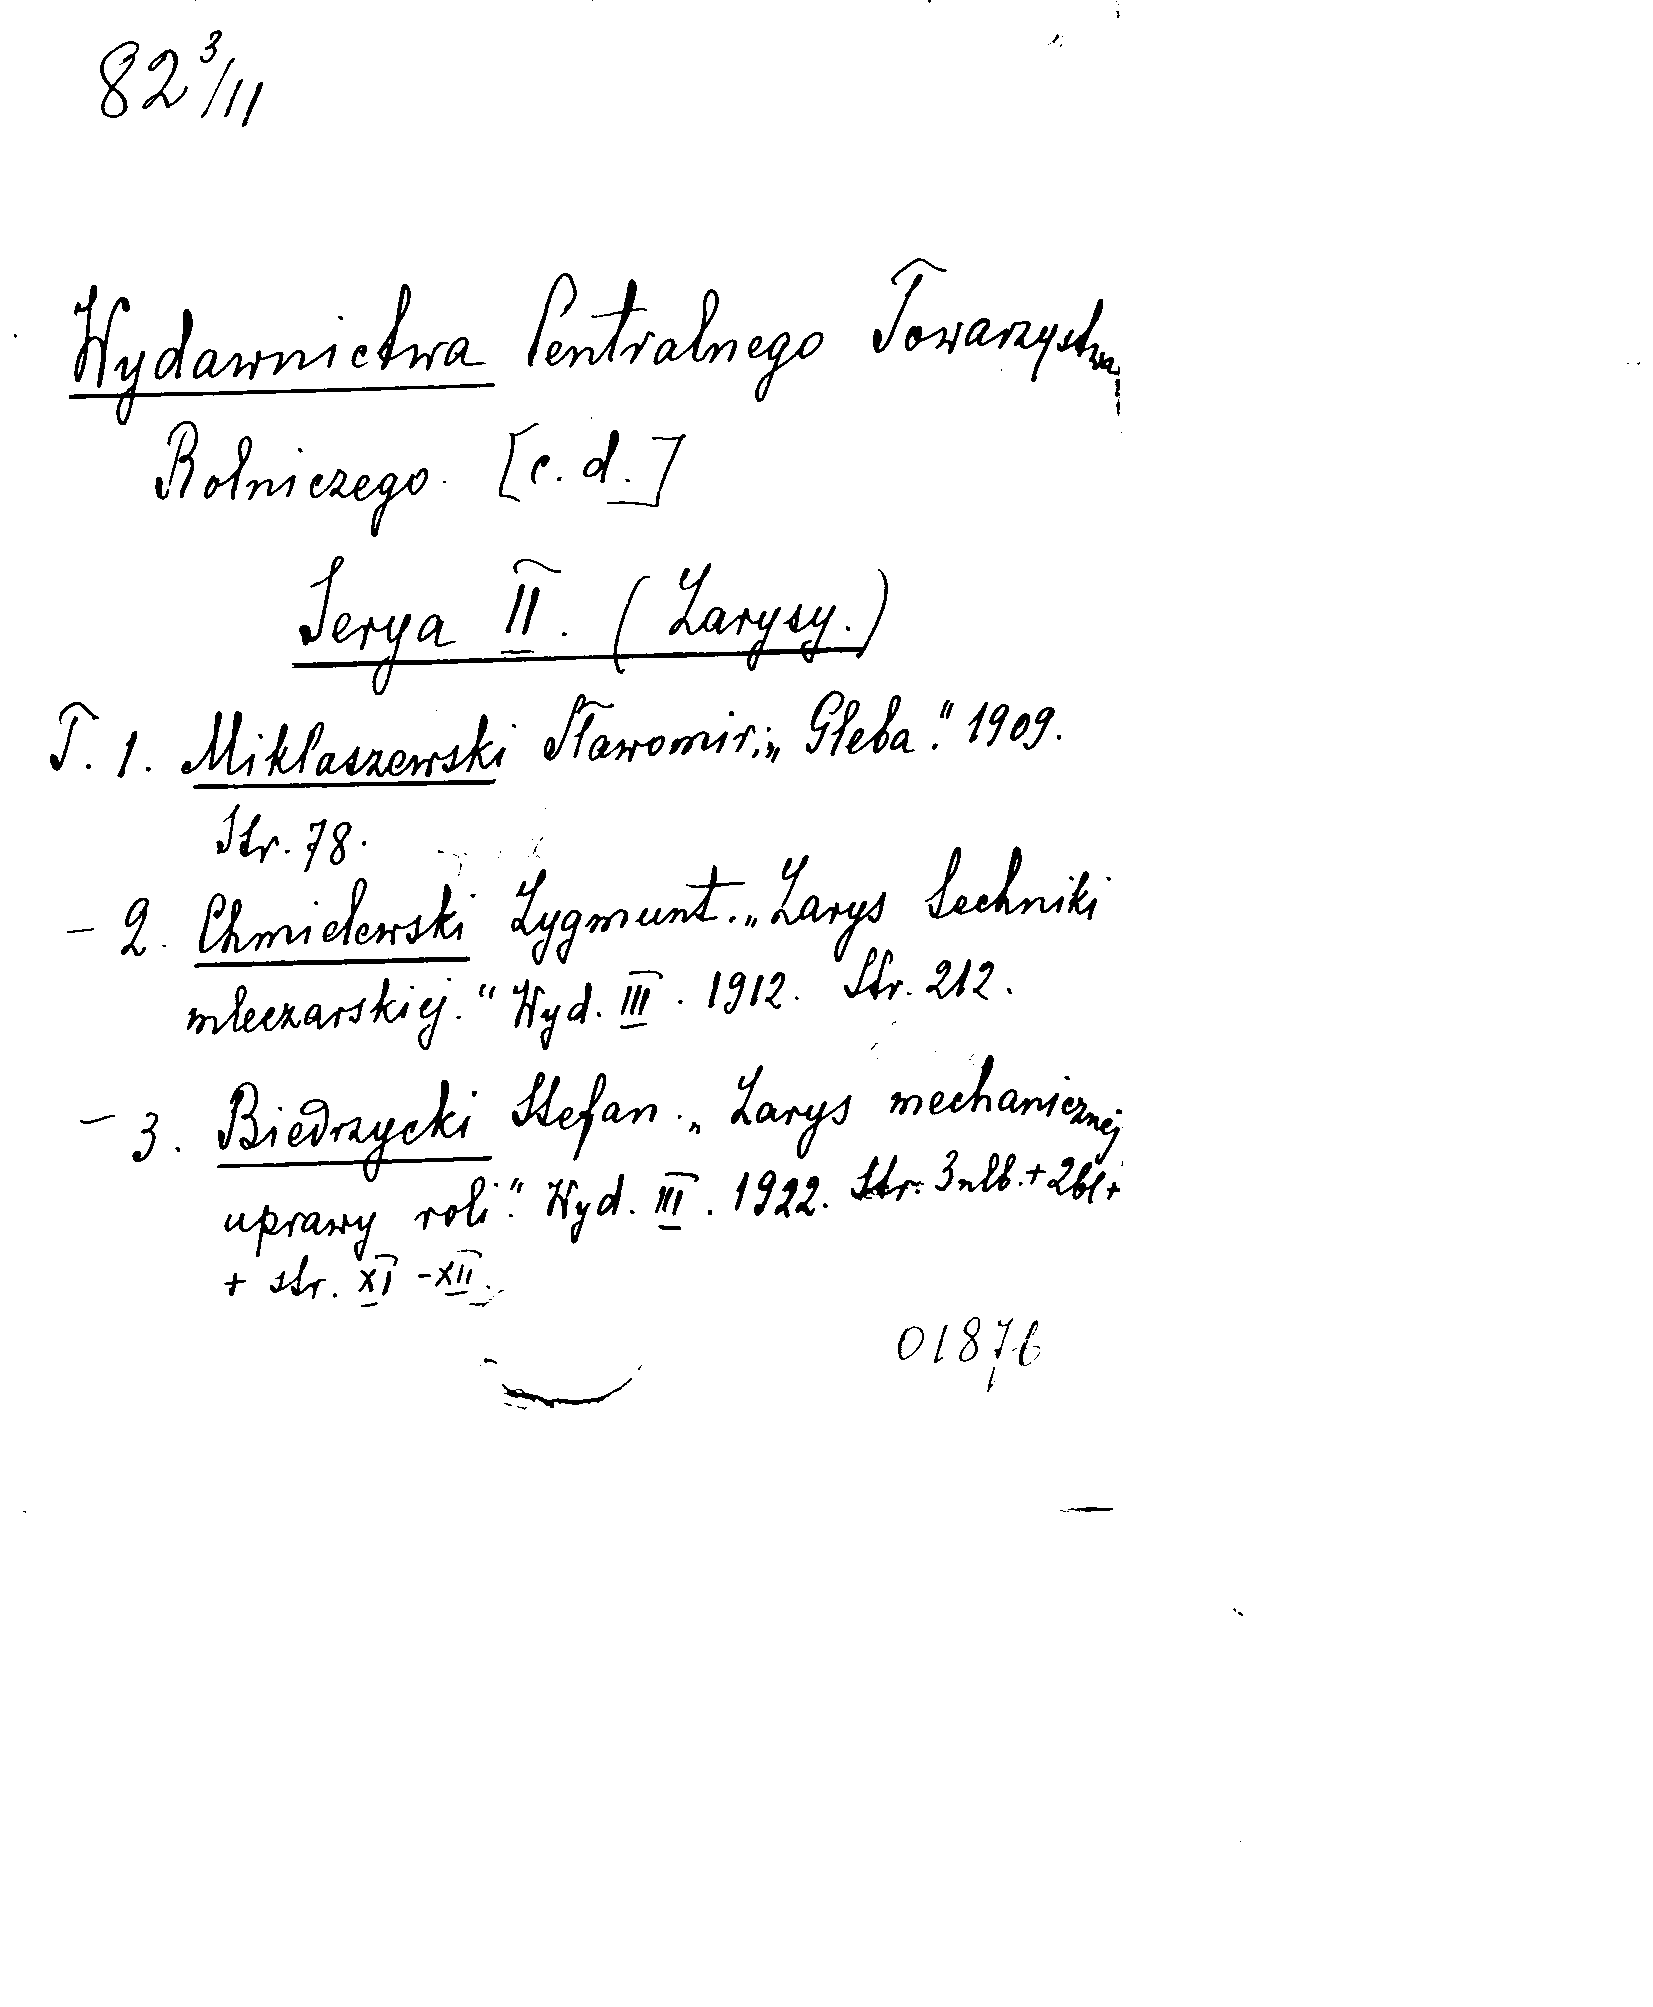 82 3/II
Wydawnictwa Centralnego Towarzystwa
Rolniczego. [c. d.]
Serya II. (Zarysy.)
T. 1. Mikłaszewski Sławomir: „Gleba.“ 1909.
Str. 78.
- 2. Chmielewski Zygmunt. „Zarys techniki
mleczarskiej.“ Wyd. III. 1912. Str. 212.
- 3. Biedrzycki Stefan. „Zarys mechanicznej
uprawy roli.“ Wyd. III. 1922. Str. 3 nlb. + 261 +
+ str. XI - XII.
01876